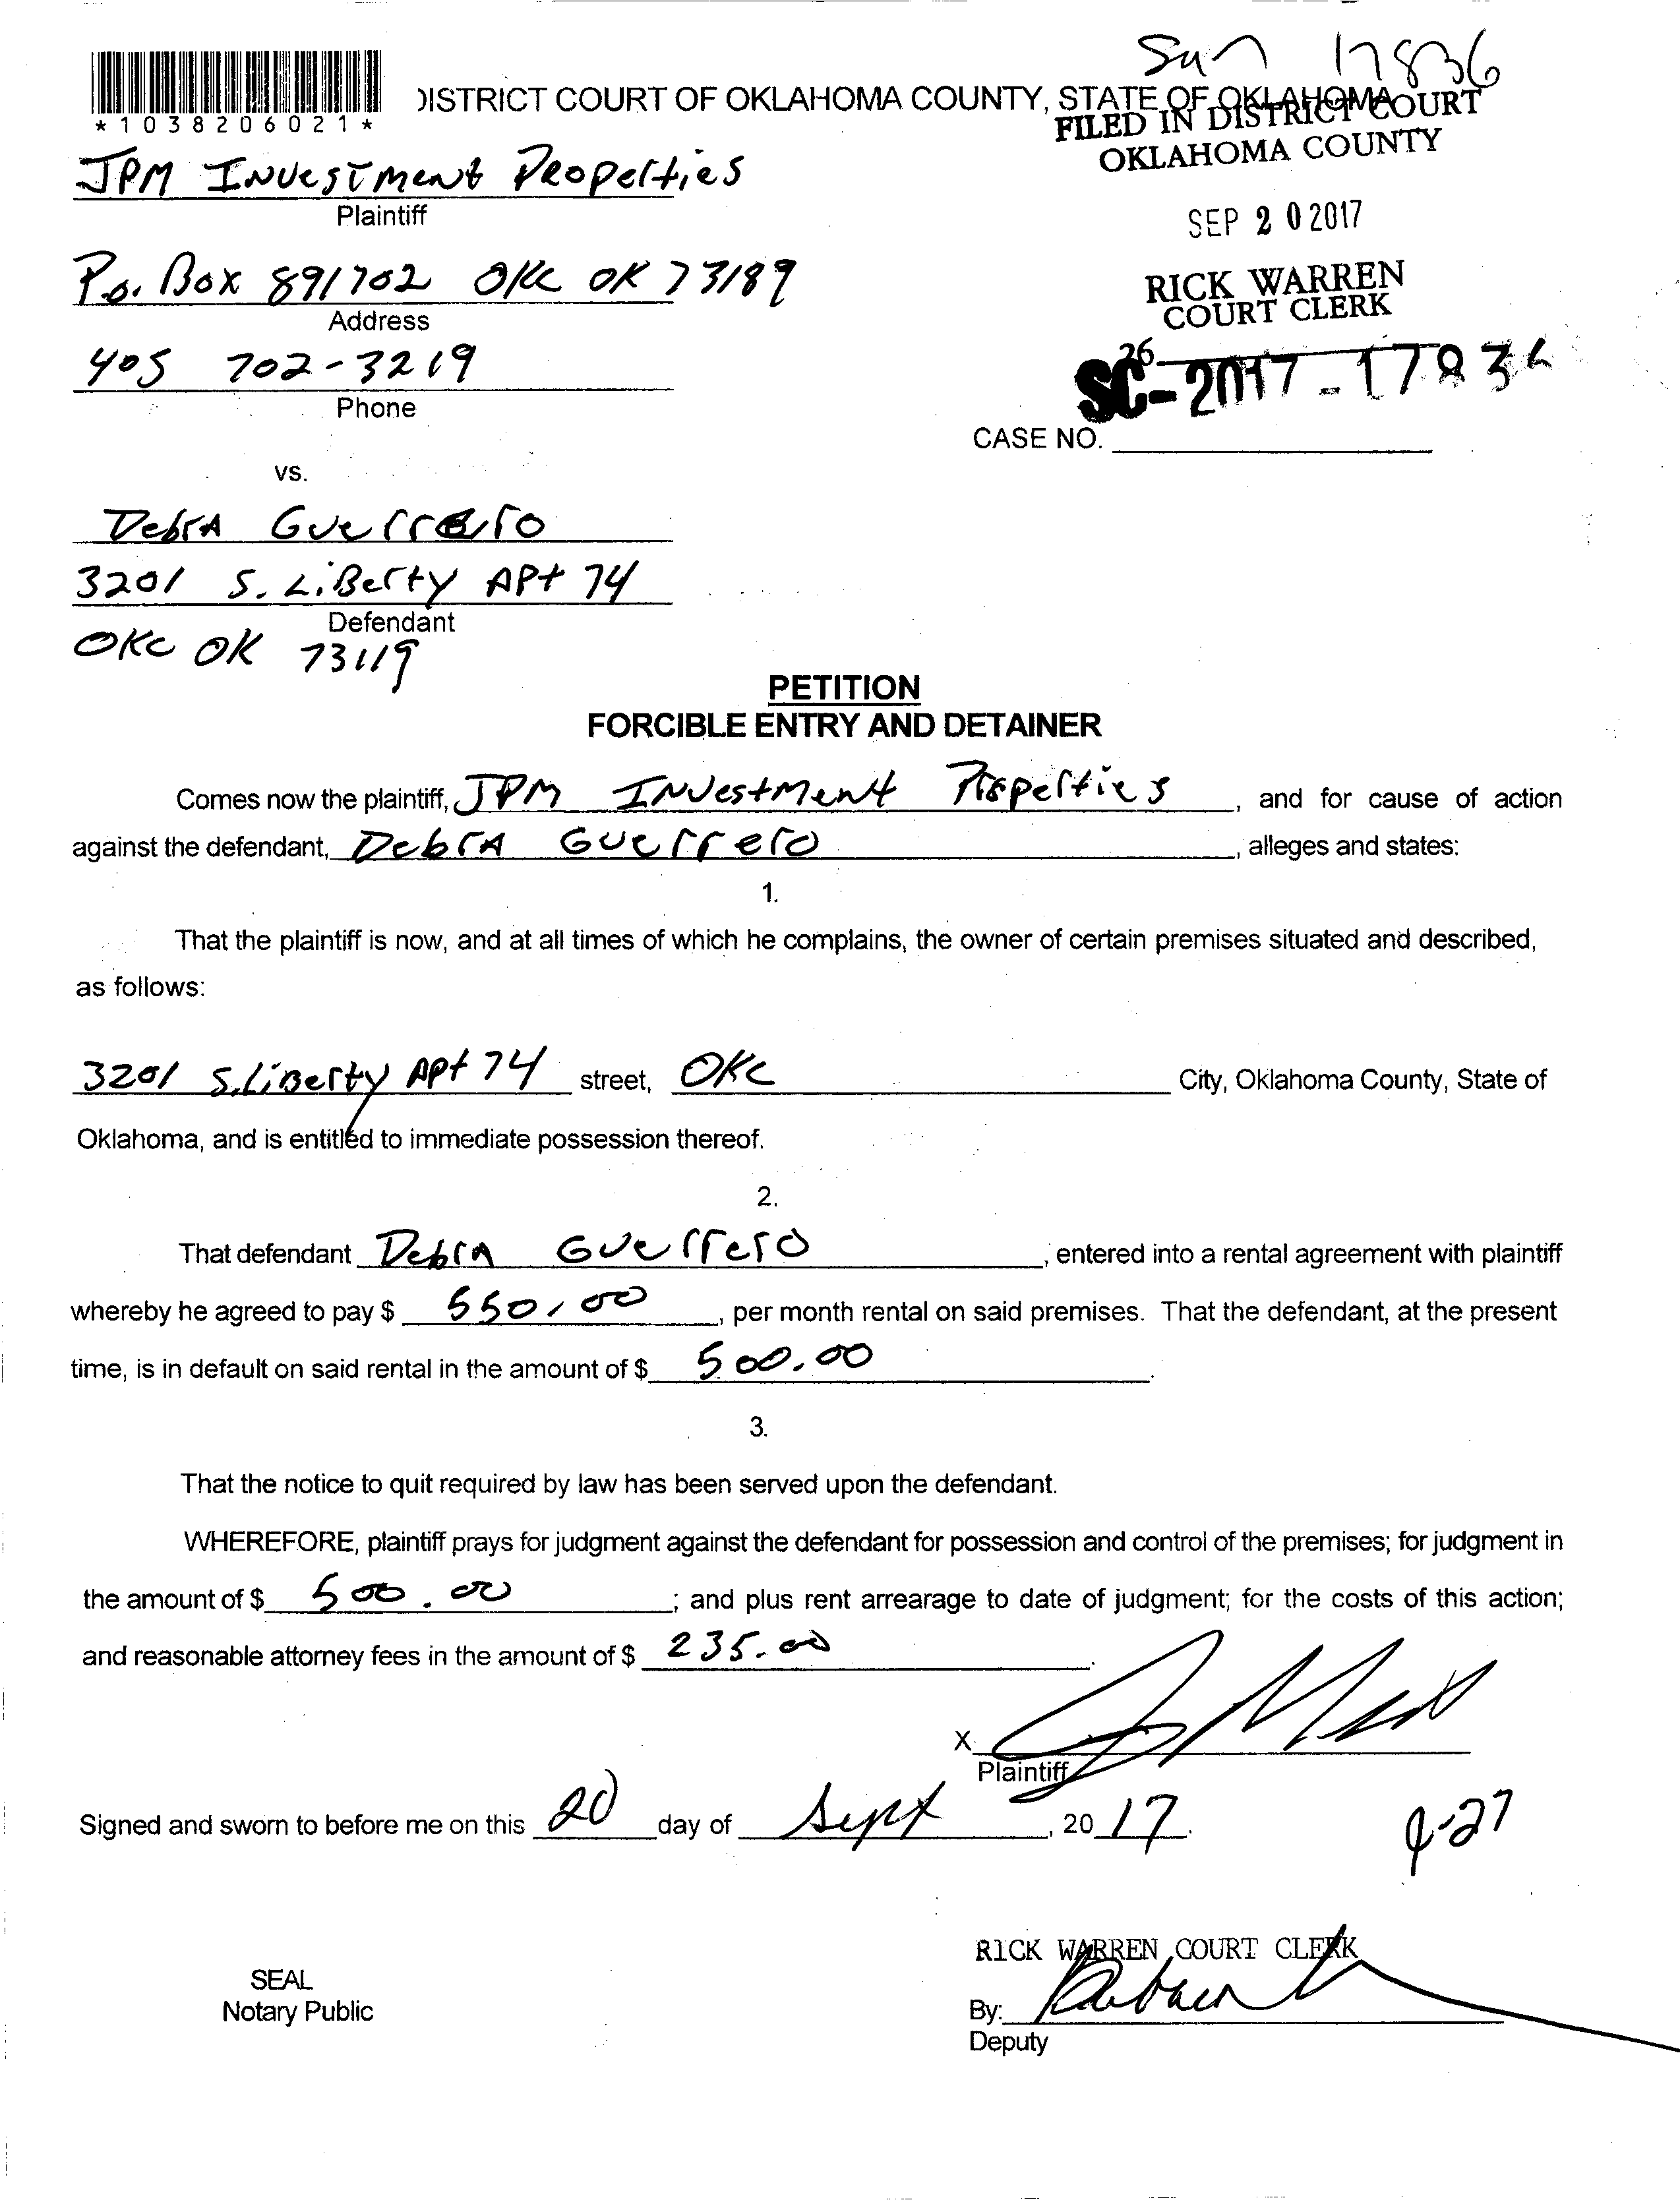 Sun 17836
*1038206021*
DISTRICT COURT OF OKLAHOMA COUNTY, STATE OF OKLAHOMA
FILED IN DISTRICT COURT
OKLAHOMA COUNTY
JPM Investment Properties
Plaintiff
SEP 20 2017
P.O. Box 891702 OKC OK 73189
Address
RICK WARREN
COURT CLERK
405 702-3219
Phone
26
SC-2017-17836
CASE NO.
vs.
Debra Guerrero
3201 S. Liberty Apt 74
Defendant
OKC OK 73119
PETITION
FORCIBLE ENTRY AND DETAINER
Comes now the plaintiff, JPM Investment Properties, and for cause of action
against the defendant, Debra Guerrero, alleges and states:
1.
That the plaintiff is now, and at all times of which he complains, the owner of certain premises situated and described,
as follows:
3201 S. Liberty Apt 74 street, OKC City, Oklahoma County, State of
Oklahoma, and is entitled to immediate possession thereof.
2.
That defendant Debra Guerrero, entered into a rental agreement with plaintiff
whereby he agreed to pay $ 550.00, per month rental on said premises. That the defendant, at the present
time, is in default on said rental in the amount of $ 500.00.
3.
That the notice to quit required by law has been served upon the defendant.
WHEREFORE, plaintiff prays for judgment against the defendant for possession and control of the premises; for judgment in
the amount of $ 500.00; and plus rent arrearage to date of judgment; for the costs of this action;
and reasonable attorney fees in the amount of $ 235.00.
X
Plaintiff
Signed and sworn to before me on this 20 day of Sept, 2017.
9-27
RICK WARREN COURT CLERK
SEAL
Notary Public
By:
Deputy